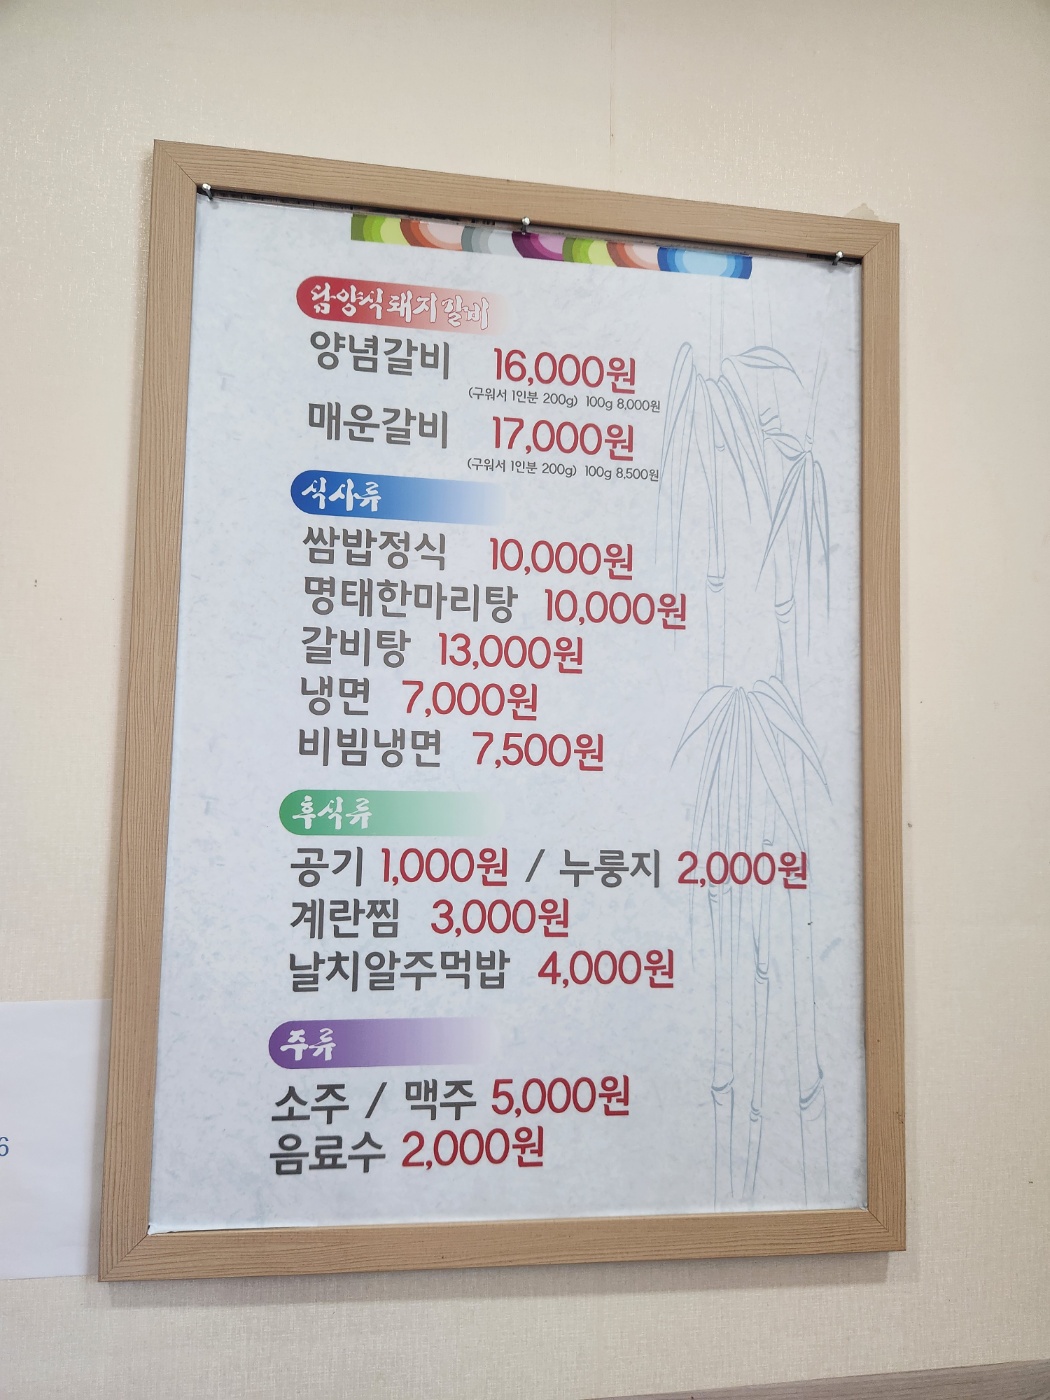 담양식돼지갈비
양념갈비 16,000원
(구워서 1인분 200g) 100g 8,000원
매운갈비 17,000원
(구워서 1인분 200g) 100g 8,500원
식사류
쌈밥정식 10,000원
명태한마리탕 10,000원
갈비탕 13,000원
냉면 7,000원
비빔냉면 7,500원
후식류
공기 1,000원 / 누룽지 2,000원
계란찜 3,000원
날치알주먹밥 4,000원
주류
소주 / 맥주 5,000원
음료수 2,000원
6